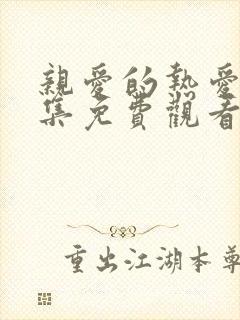 親愛的熱愛
集免費觀看
重出江湖本尊